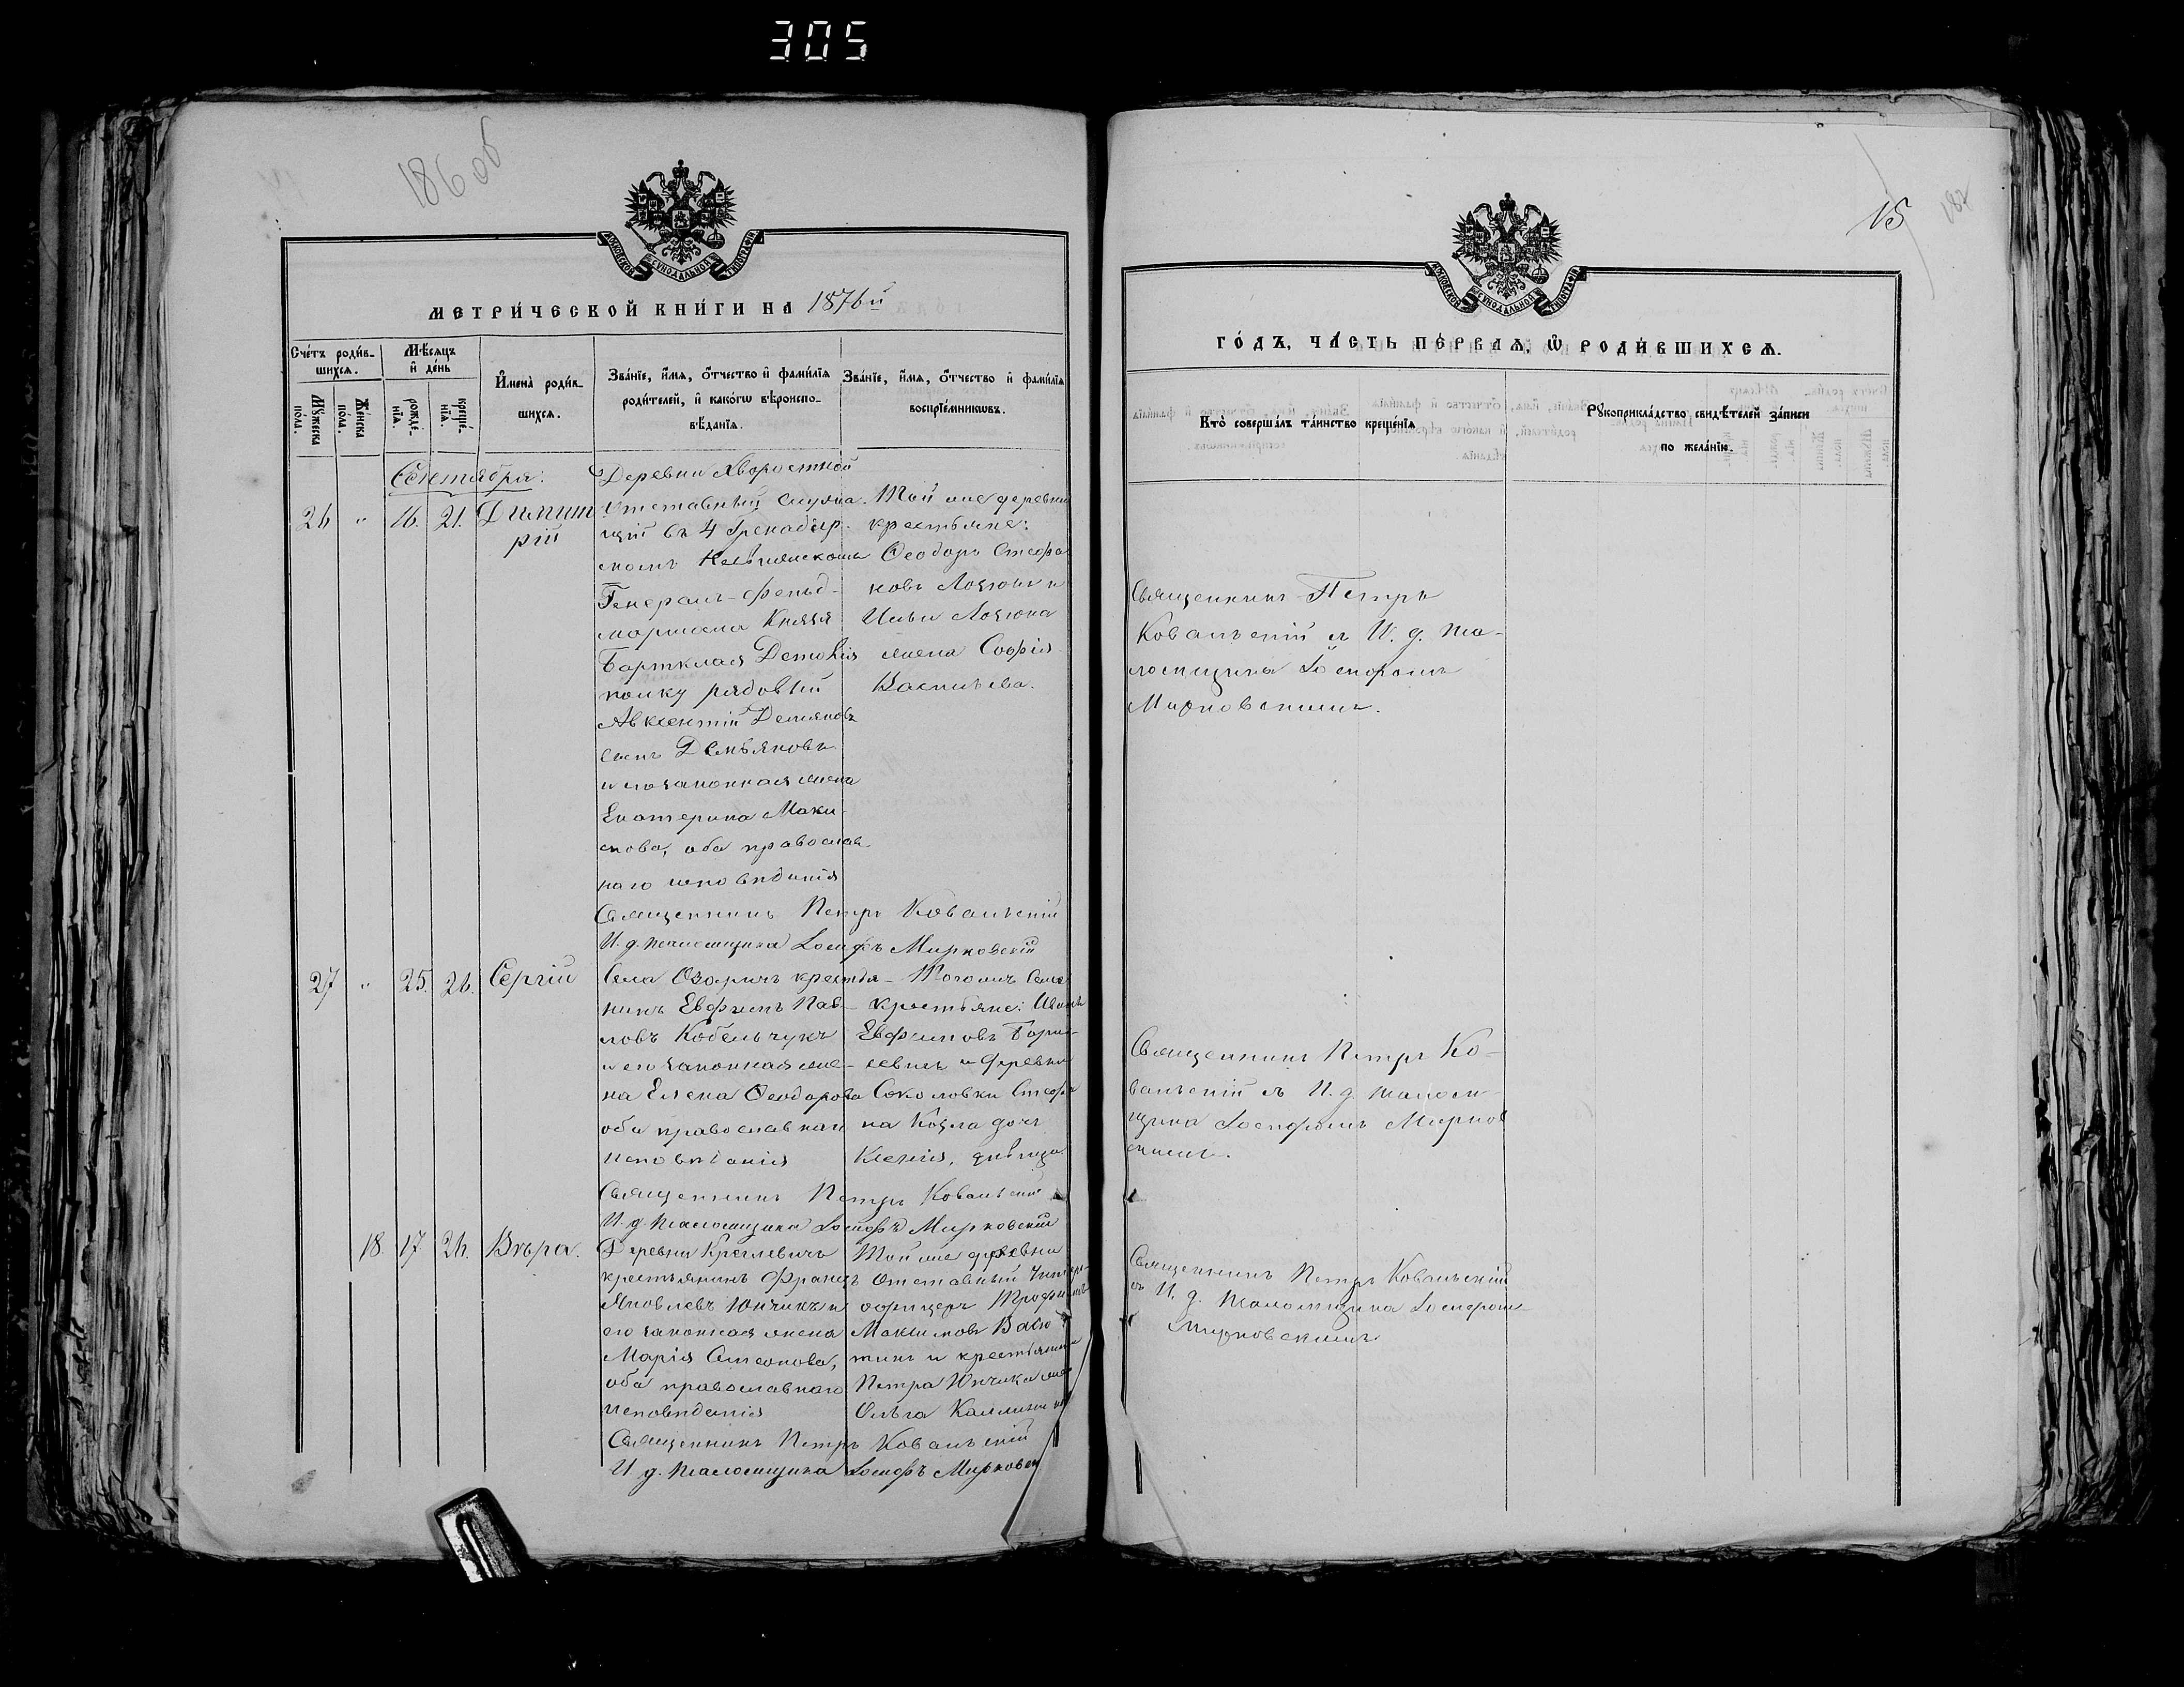 305
186 об
МОСКОВСКОЙ СѴНОДАЛЬНОЙ ТИПОГРАФІИ
МЕТРИ́ЧЕСКОЙ КНИ́ГИ НА 1876й
Сче́тъ роди́в-
шихсѧ.
Мꙋ́жеска
пола.
Же́нска
пола.
Мѣ́сѧцъ
и҆ де́нь
рожде́-
нїѧ.
креще́-
нїѧ.
И҆мена̀ роди́в-
шихсѧ.
Зва́нїе, и҆́мѧ, ѻ҆́тчество и҆ фами́лїѧ
роди́телей, и҆ како́гѡ вѣроиспо-
вѣ́данїѧ.
Зва́нїе, и҆́мѧ, ѻ҆́тчество и҆ фами́лїѧ
воспрїе́мникѡвъ.
Сентября:
26 " 16. 21. Димит
рій
Деревни Хворостной
Отставный служа-
щій въ 4 Гренадер-
скомъ Несвижскомъ
Генералъ-фельд-
маршала Князя
Барклая Детолія
полку рядовый
Авксентій Демяновъ
сынъ Демьяновъ
и его законная жена
Екатерина Макси-
мова, оба православ
наго исповѣданія
Той же деревни
крестьяне:
Ѳеодоръ Стефа
новъ Лозюкъ и
Ильи Лозюка
жена Софія
Васильева.
Священникъ Петръ Ковальскій
И. д. псаломщика Іосифъ Мирковскій
27 " 25. 26. Сергій
Села Озаричъ крестья-
нинъ Евфимъ Пав-
ловъ Кобельчукъ
и его законная же-
на Елена Ѳеодорова
оба православнаго
исповѣданія
Тогожъ Села
крестьяне: Иванъ
Евфимовъ Бори-
севичъ и деревни
Соколовки Стефа
на Козла дочь
Ксенія, дѣвица
Священникъ Петръ Ковальскій
И. д. псаломщика Іосифъ Мирковскій
18. 17 26. Вѣра.
Деревни Креглевичъ
крестьянинъ Францъ
Яковлевъ Юнчикъ и
его законная жена
Марія Семеонова,
оба православнаго
исповѣданія
Той же деревни
Отставный Унтеръ-
офицеръ Трофимъ
Максимовъ
и крестьянина
Петра Юнчика жена
Ольга
Священникъ Петръ Ковальскій
И. д. псаломщика Іосифъ Мирковскій
15
187
МОСКОВСКОЙ СѴНОДАЛЬНОЙ ТИПОГРАФІИ
ГО́ДЪ, ЧА́СТЬ ПЕ́РВАѦ, Ѽ РОДИ́ВШИХСѦ.
Кто̀ соверша́лъ та́инство креще́нїѧ
Рꙋкоприкла́дство свидѣ́телей за́писи
по жела́нїю.
Священникъ Петръ
Ковальскій съ И. д. пса-
ломщика Іосифомъ
Мирковскимъ.
Священникъ Петръ Ко-
вальскій съ И. д. псалом-
щика Іосифомъ Мирков
скимъ.
Священникъ Петръ Ковальскій
съ И. д. псаломщика Іосифомъ
Мирковскимъ